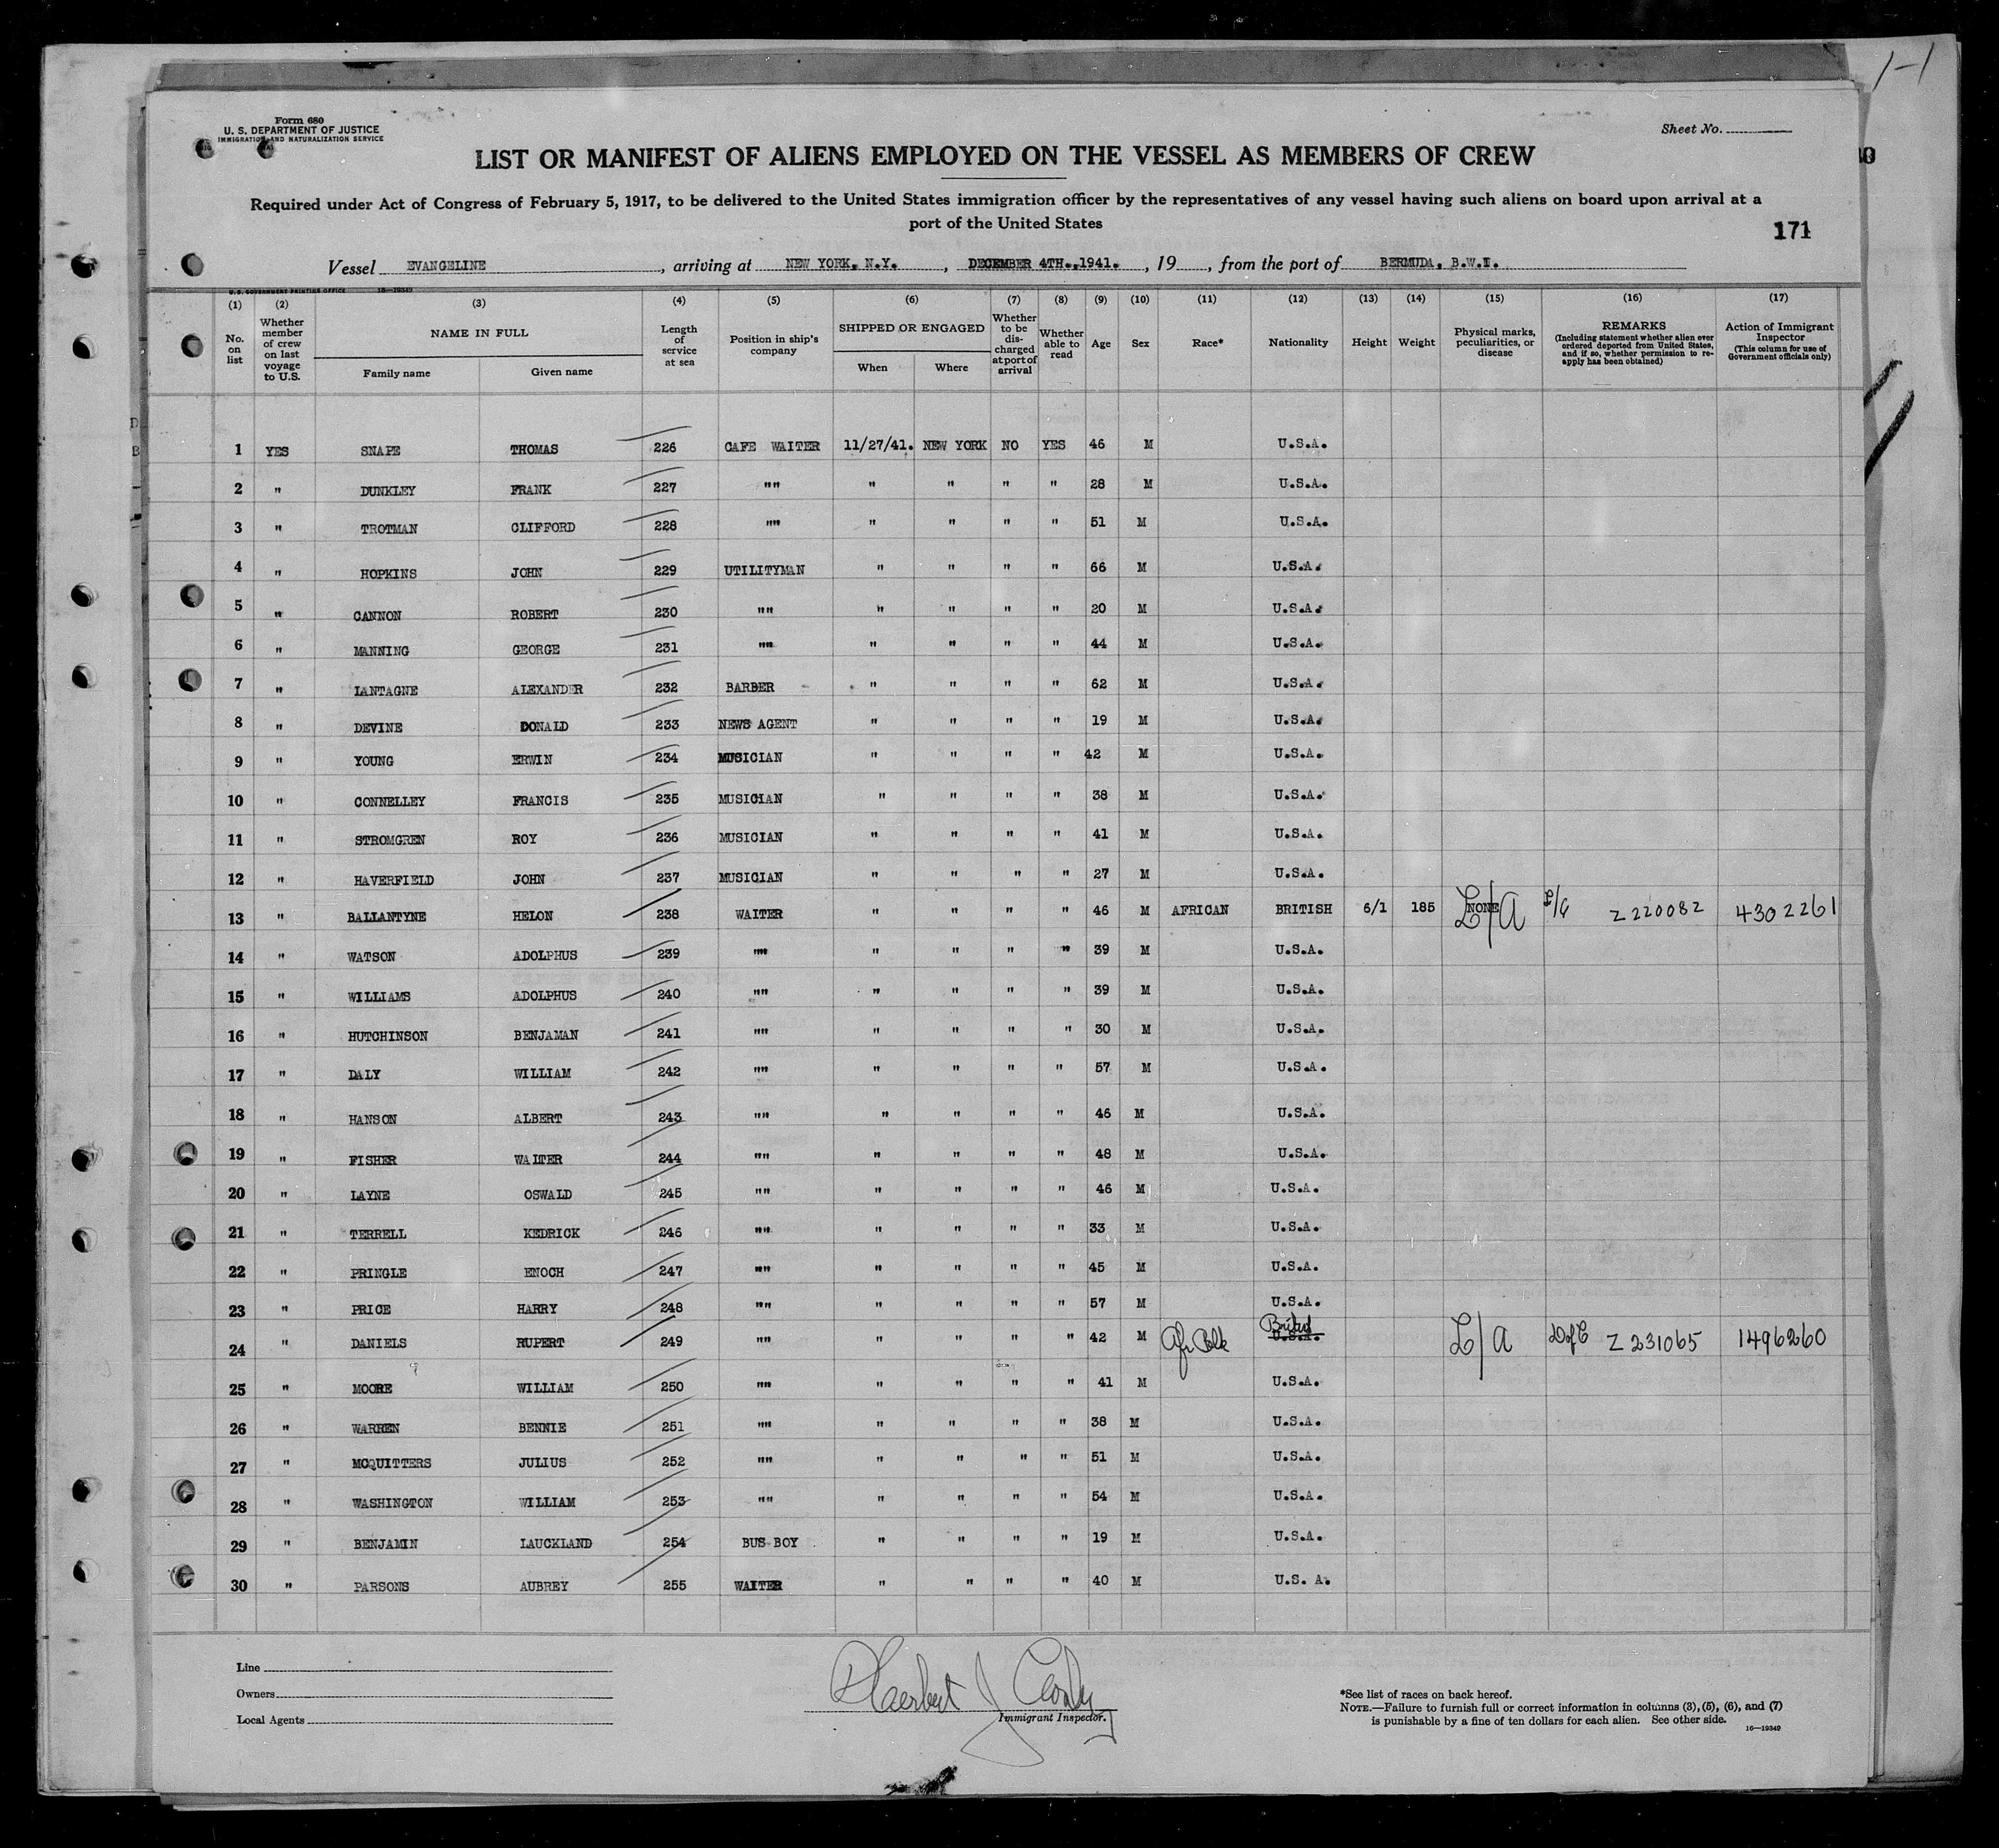 1-1
Form 680
U. S. DEPARTMENT OF JUSTICE
IMMIGRATION AND NATURALIZATION SERVICE
Sheet No.
LIST OR MANIFEST OF ALIENS EMPLOYED ON THE VESSEL AS MEMBERS OF CREW
Required under Act of Congress of February 5, 1917, to be delivered to the United States immigration officer by the representatives of any vessel having such aliens on board upon arrival at a
port of the United States
171
Vessel EVANGELINE , arriving at NEW YORK, N.Y. , DECEMBER 4TH.,1941. , 19 , from the port of BERMUDA, B.W.I.
U.S. GOVERNMENT PRINTING OFFICE 16—19349
(1) (2) (3) (4) (5) (6) (7) (8) (9) (10) (11) (12) (13) (14) (15) (16) (17)
No. on list Whether member of crew on last voyage to U.S. NAME IN FULL Family name Given name Length of service at sea Position in ship's company SHIPPED OR ENGAGED When Where Whether to be discharged at port of arrival Whether able to read Age Sex Race* Nationality Height Weight Physical marks, peculiarities, or disease REMARKS (Including statement whether alien ever ordered deported from United States, and if so, whether permission to reapply has been obtained) Action of Immigrant Inspector (This column for use of Government officials only)
1 YES SNAPE THOMAS 226 CAFE WAITER 11/27/41. NEW YORK NO YES 46 M U.S.A.
2 " DUNKLEY FRANK 227 "" " " " " 28 M U.S.A.
3 " TROTMAN CLIFFORD 228 "" " " " " 51 M U.S.A.
4 " HOPKINS JOHN 229 UTILITYMAN " " " " 66 M U.S.A.
5 " CANNON ROBERT 230 "" " " " " 20 M U.S.A.
6 " MANNING GEORGE 231 "" " " " " 44 M U.S.A.
7 " LANTAGNE ALEXANDER 232 BARBER " " " " 62 M U.S.A.
8 " DEVINE DONALD 233 NEWS AGENT " " " " 19 M U.S.A.
9 " YOUNG ERWIN 234 MUSICIAN " " " " 42 M U.S.A.
10 " CONNELLEY FRANCIS 235 MUSICIAN " " " " 38 M U.S.A.
11 " STROMGREN ROY 236 MUSICIAN " " " " 41 M U.S.A.
12 " HAVERFIELD JOHN 237 MUSICIAN " " " " 27 M U.S.A.
13 " BALLANTYNE HELON 238 WAITER " " " " 46 M AFRICAN BRITISH 6/1 185 NONE L/A Z220082 4302261
14 " WATSON ADOLPHUS 239 "" " " " " 39 M U.S.A.
15 " WILLIAMS ADOLPHUS 240 "" " " " " 39 M U.S.A.
16 " HUTCHINSON BENJAMAN 241 "" " " " " 30 M U.S.A.
17 " DALY WILLIAM 242 "" " " " " 57 M U.S.A.
18 " HANSON ALBERT 243 "" " " " " 46 M U.S.A.
19 " FISHER WALTER 244 "" " " " " 48 M U.S.A.
20 " LAYNE OSWALD 245 "" " " " " 46 M U.S.A.
21 " TERRELL KEDRICK 246 "" " " " " 33 M U.S.A.
22 " PRINGLE ENOCH 247 "" " " " " 45 M U.S.A.
23 " PRICE HARRY 248 "" " " " " 57 M U.S.A.
24 " DANIELS RUPERT 249 "" " " " " 42 M Afr Blk British U.S.A. L/A Z231065 1496260
25 " MOORE WILLIAM 250 "" " " " " 41 M U.S.A.
26 " WARREN BENNIE 251 "" " " " " 38 M U.S.A.
27 " MCQUITTERS JULIUS 252 "" " " " " 51 M U.S.A.
28 " WASHINGTON WILLIAM 253 "" " " " " 54 M U.S.A.
29 " BENJAMIN LAUCKLAND 254 BUS BOY " " " " 19 M U.S.A.
30 " PARSONS AUBREY 255 WAITER " " " " 40 M U.S. A.
Line
Owners
Local Agents
Herbert J
Immigrant Inspector.
*See list of races on back hereof.
NOTE.—Failure to furnish full or correct information in columns (3), (5), (6), and (7)
is punishable by a fine of ten dollars for each alien. See other side.
16—19349